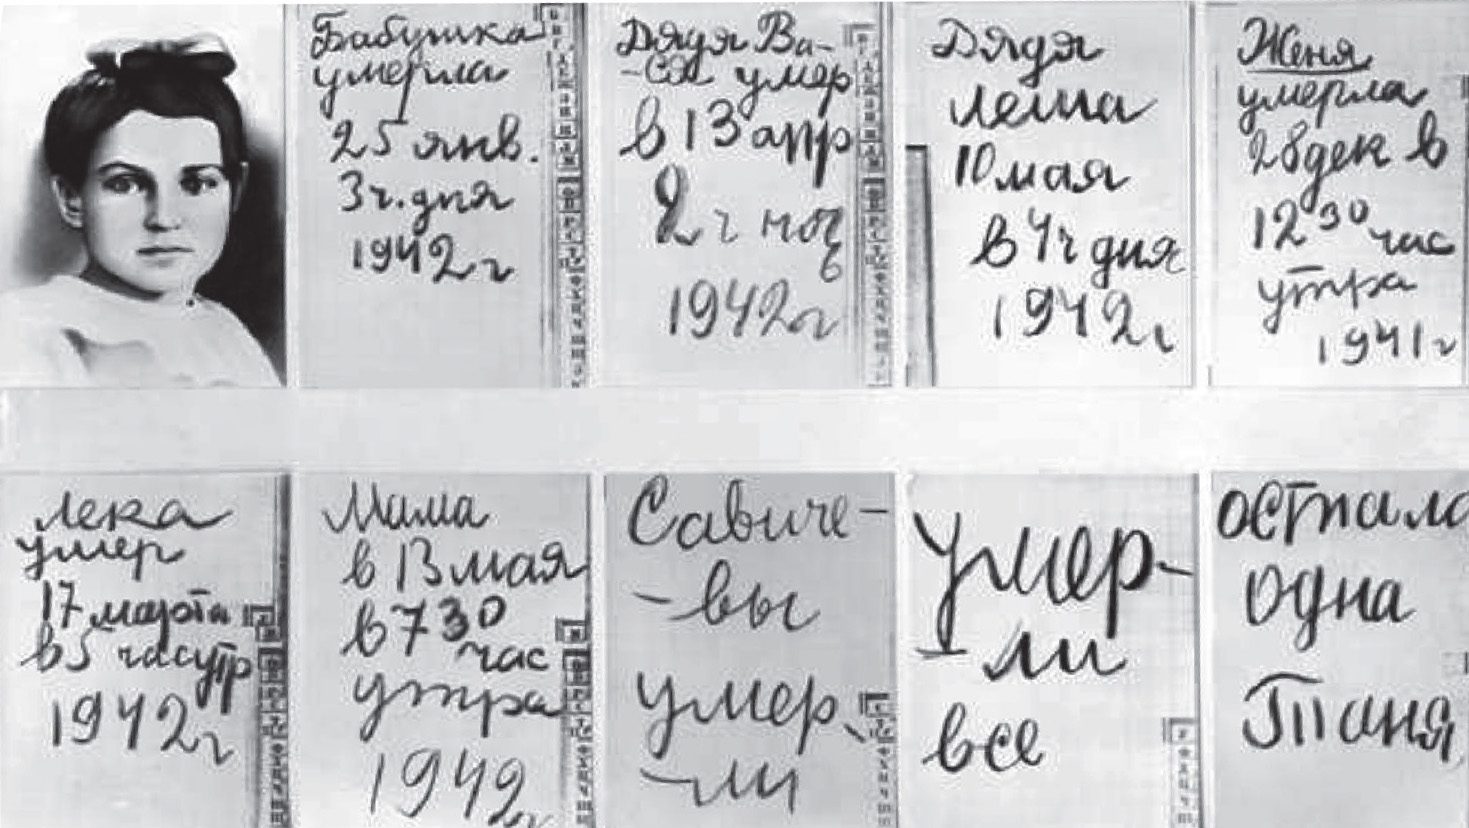 Бабушка
умерла
25 янв.
3ч. дня
1942 г
Дядя Ва-
-ся умер
в 13 апр
2 ч ноч
ь
1942 г
Дядя
Леша
10 мая
в 4ч дня
1942 г
Женя
умерла
28 дек в
12 30 час
утра
1941 г
Лека
умер
17 марта
в 5 час утр
1942 г
Мама
в 13 мая
в 7 30
час
утра
1942 г
Савиче-
-вы
умер
-ли
Умер-
-ли
все
Остала
одна
Таня